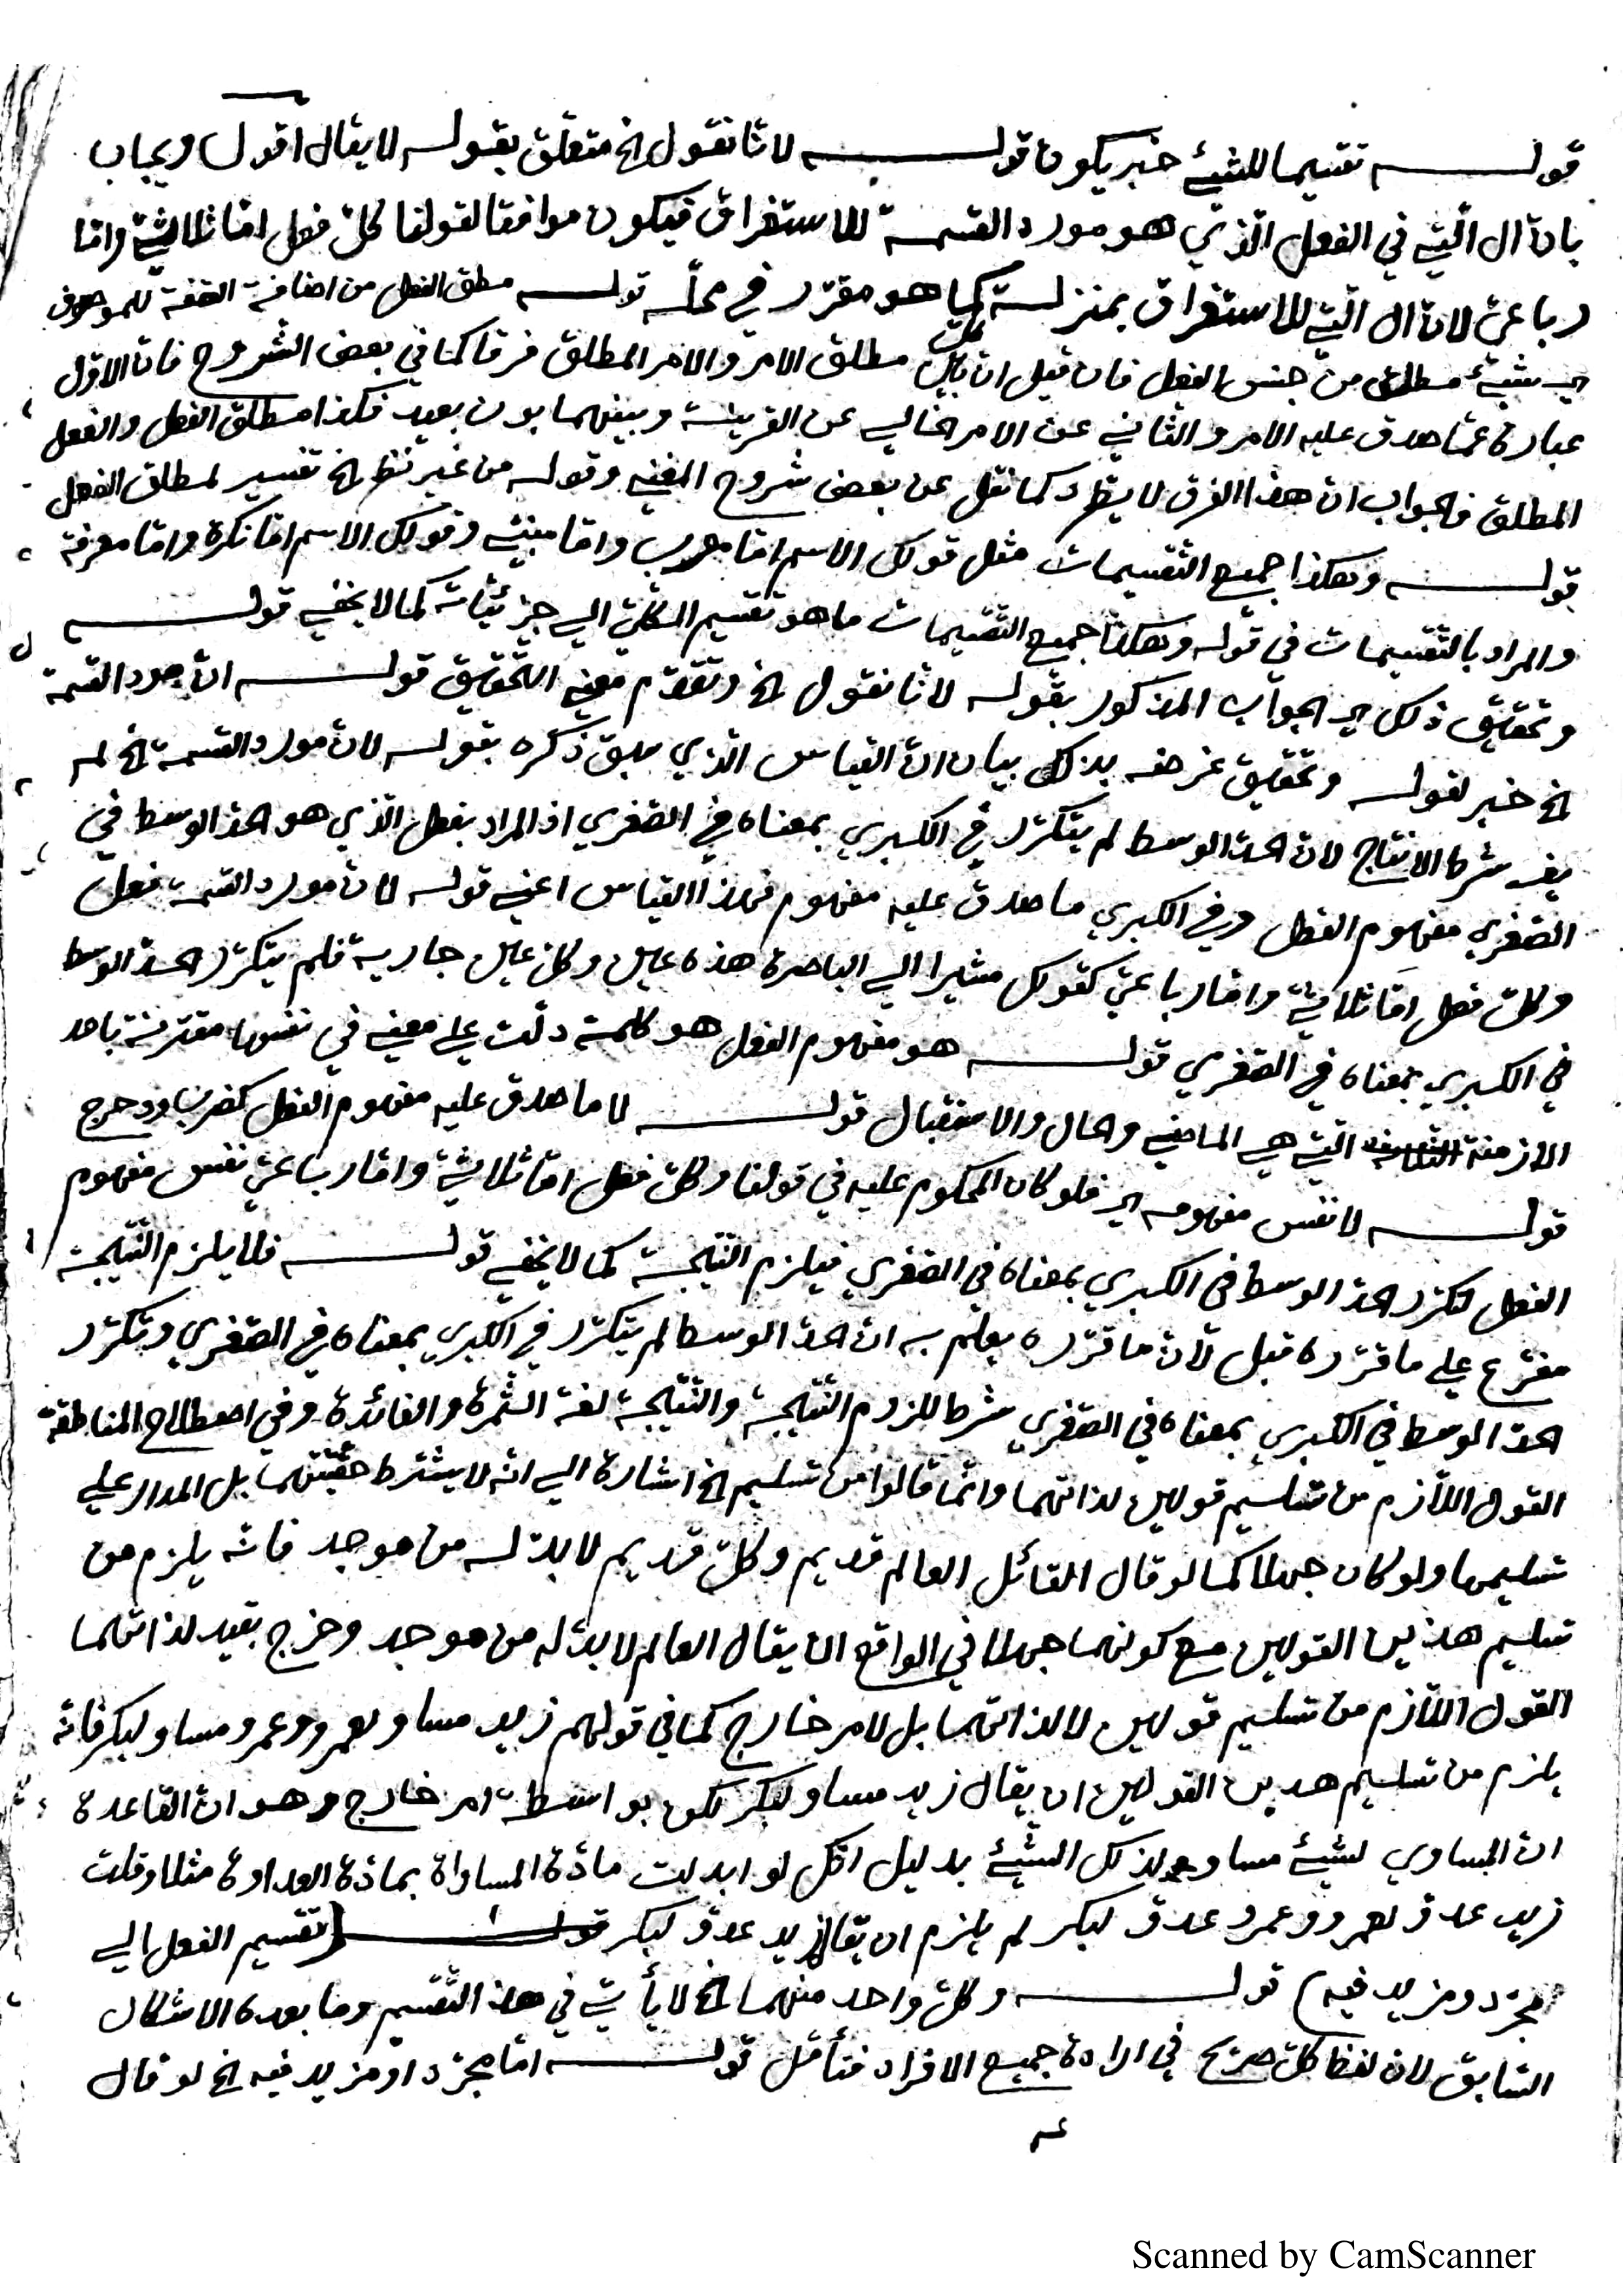 قوله تقسيما للشيئ خبر يكون قوله لانا نقول الخ متعلق بقوله لا يقال اقول ويجاب
بان ال التي في الفعل الذي هو مورد القسمة للاستغراق فيكون موافقا لقولنا كل فعل اما ثلاثي واما
رباعي لان ال التي للاستغراق بمنزلة كل كما هو مقرر في محله قوله مطلق الفعل من اضافة الصفة للموصوف
اي شيئ مطلق من جنس الفعل فان قيل ان بين مطلق الامر والامر المطلق فرقا كما في بعض الشروح فان الاول
عبارة عما صدق عليه الامر والثاني عن الامر الخالي عن القرينة وبينهما بون بعيد فكذا مطلق الفعل والفعل
المطلق فالجواب ان هذا الفرق لا يطرد كما نقل عن بعض شروح المغني وقوله من غير نظر الخ تفسير لمطلق الفعل
قوله وهكذا جميع التقسيمات مثل قولك الاسم اما معرب واما مبني وقولك الاسم اما نكرة واما معرفة
والمراد بالتقسيمات في قوله وهكذا جميع التقسيمات ما هو تقسيم الكلي الي جزئياته كما لا يخفي قوله
وتحقيق ذلك اي الجواب المذكور بقوله لانا نقول الخ وتقدم معني التحقيق قوله ان مورد القسمة
الخ خبر لقوله وتحقيق غرضه بذلك بيان ان القياس الذي سبق ذكره بقوله لان مورد القسمة الخ لم
يف شرط الانتاج لان الحد الوسط لم يتكرر في الكبري بمعناه في الصغري اذ المراد بفعل الذي هو الحد الوسط في
الصغري مفهوم الفعل وفي الكبري ما صدق عليه مفهوم فهذا القياس اعني قوله لان مورد القسمة فعل
وكل فعل اما ثلاثي واما رباعي كقولك مشيرا الي الباصرة هذه عين وكل عين جارية فلم يتكرر الحد الوسط
في الكبري بمعناه في الصغري قوله هو مفهوم الفعل هو كلمة دلت علي معني في نفسها مقترنة باحد
الازمنة الثلاثة التي هي الماضي والحال والاستقبال قوله لا ما صدق عليه مفهوم الفعل كضرب ودحرج
قوله لا نفس مفهومه اي فلو كان المحكوم عليه في قولنا وكل فعل اما ثلاثي واما رباعي نفس مفهوم
الفعل لتكرر الحد الوسط في الكبري بمعناه في الصغري فيلزم النتيجة كما لا يخفي قوله فلا يلزم النتيجة
مفرع علي ما قرره قبل لان ما قرره يعلم به ان الحد الوسط لم يتكرر في الكبري بمعناه في الصغري وتكرر
الحد الوسط في الكبري بمعناه في الصغري شرط للزوم النتيجة والنتيجة لغة الثمرة والفائدة وفي اصطلاح المناطقة
القول اللازم من تسليم قولين لذاتهما وانما قالوا من تسليم الخ اشارة الي انه لا يشترط حقيتهما بل المدار علي
تسليمهما ولو كان جهلا كما لو قال القائل العالم قديم وكل قديم لا بد له من موجد فانه يلزم من
تسليم هذين القولين مع كونهما جهلا في الواقع ان يقال العالم لا بد له من موجد وخرج بقيد لذاتهما
القول اللازم من تسليم قولين لا لذاتهما بل لامر خارج كما في قولهم زيد مساو لعمرو وعمرو مساو لبكر فانه
يلزم من تسليم هذين القولين ان يقال زيد مساو لبكر لكن بواسطة امر خارج وهو ان القاعدة
ان المساوي لشيئ مساو لذلك الشيئ بدليل انك لو ابدلت مادة المساواة بمادة العداوة مثلا وقلت
زيد عدو لعمرو وعمرو عدو لبكر لم يلزم ان يقال زيد عدو لبكر قوله (تقسيم الفعل الي
مجرد ومزيد فيه) قوله وكل واحد منهما الخ لا يأتي في هذا التقسيم وما بعده الاشكال
السابق لان لفظ كل صريح في ارادة جميع الافراد فتأمل قوله اما مجرد او مزيد فيه الخ لو قال
Scanned by CamScanner